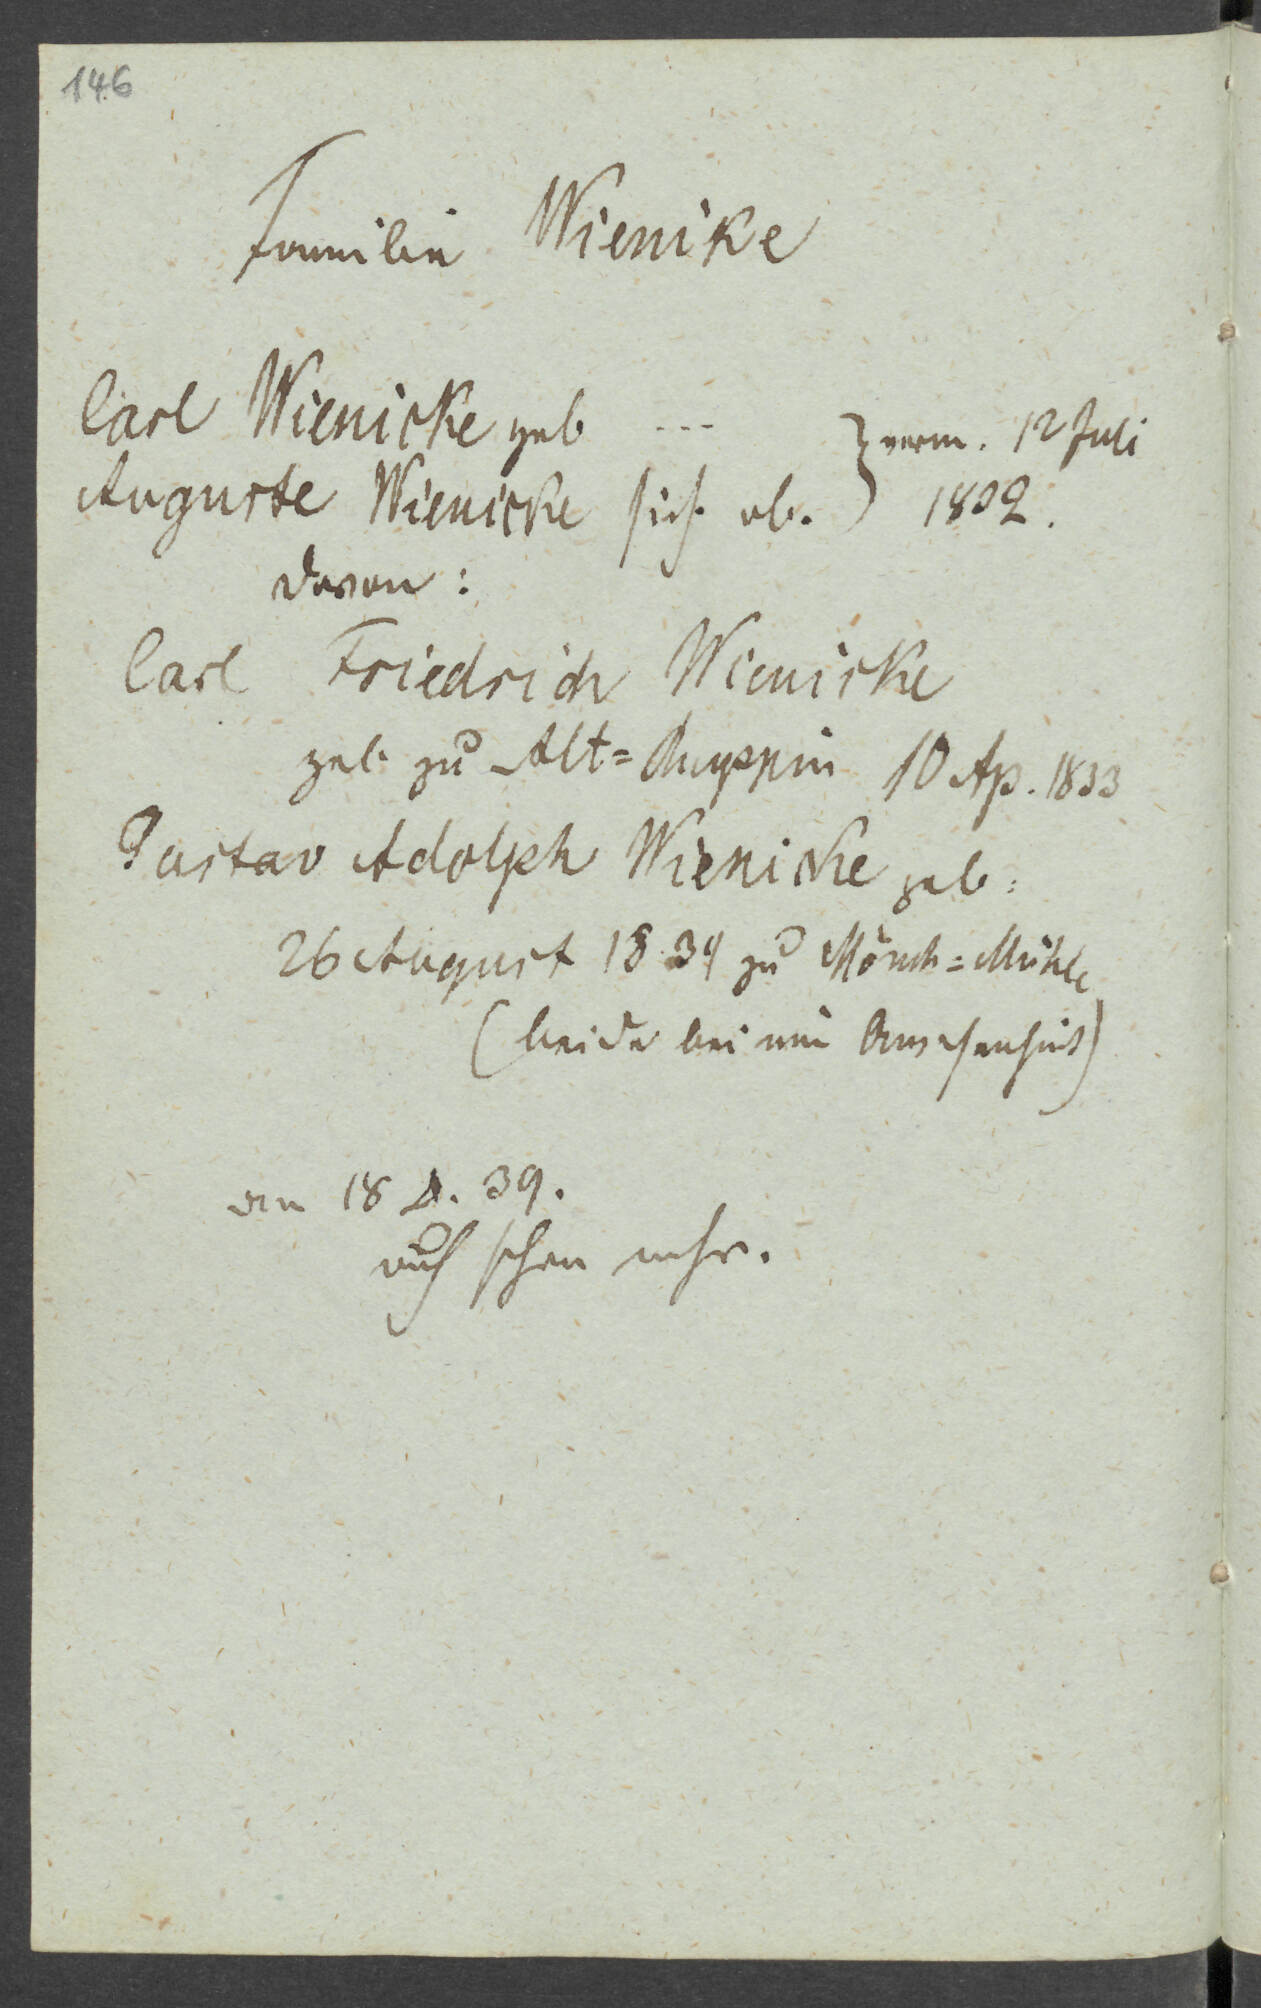 146
Familie Wienike
Carl Wienicke geb ---
Auguste Wienicke sieh. ob.
} verm. 12 Juli
1832.
davon:
Carl Friedrich Wienicke
geb. zu Alt=Ruppin 10 Ap. 1833
Gustav Adolph Wienicke geb:
26 August 1834 zu Mönch=Mühle
(beide bei mein Anwesenheit)
den 18 39.
auch schon mehr.